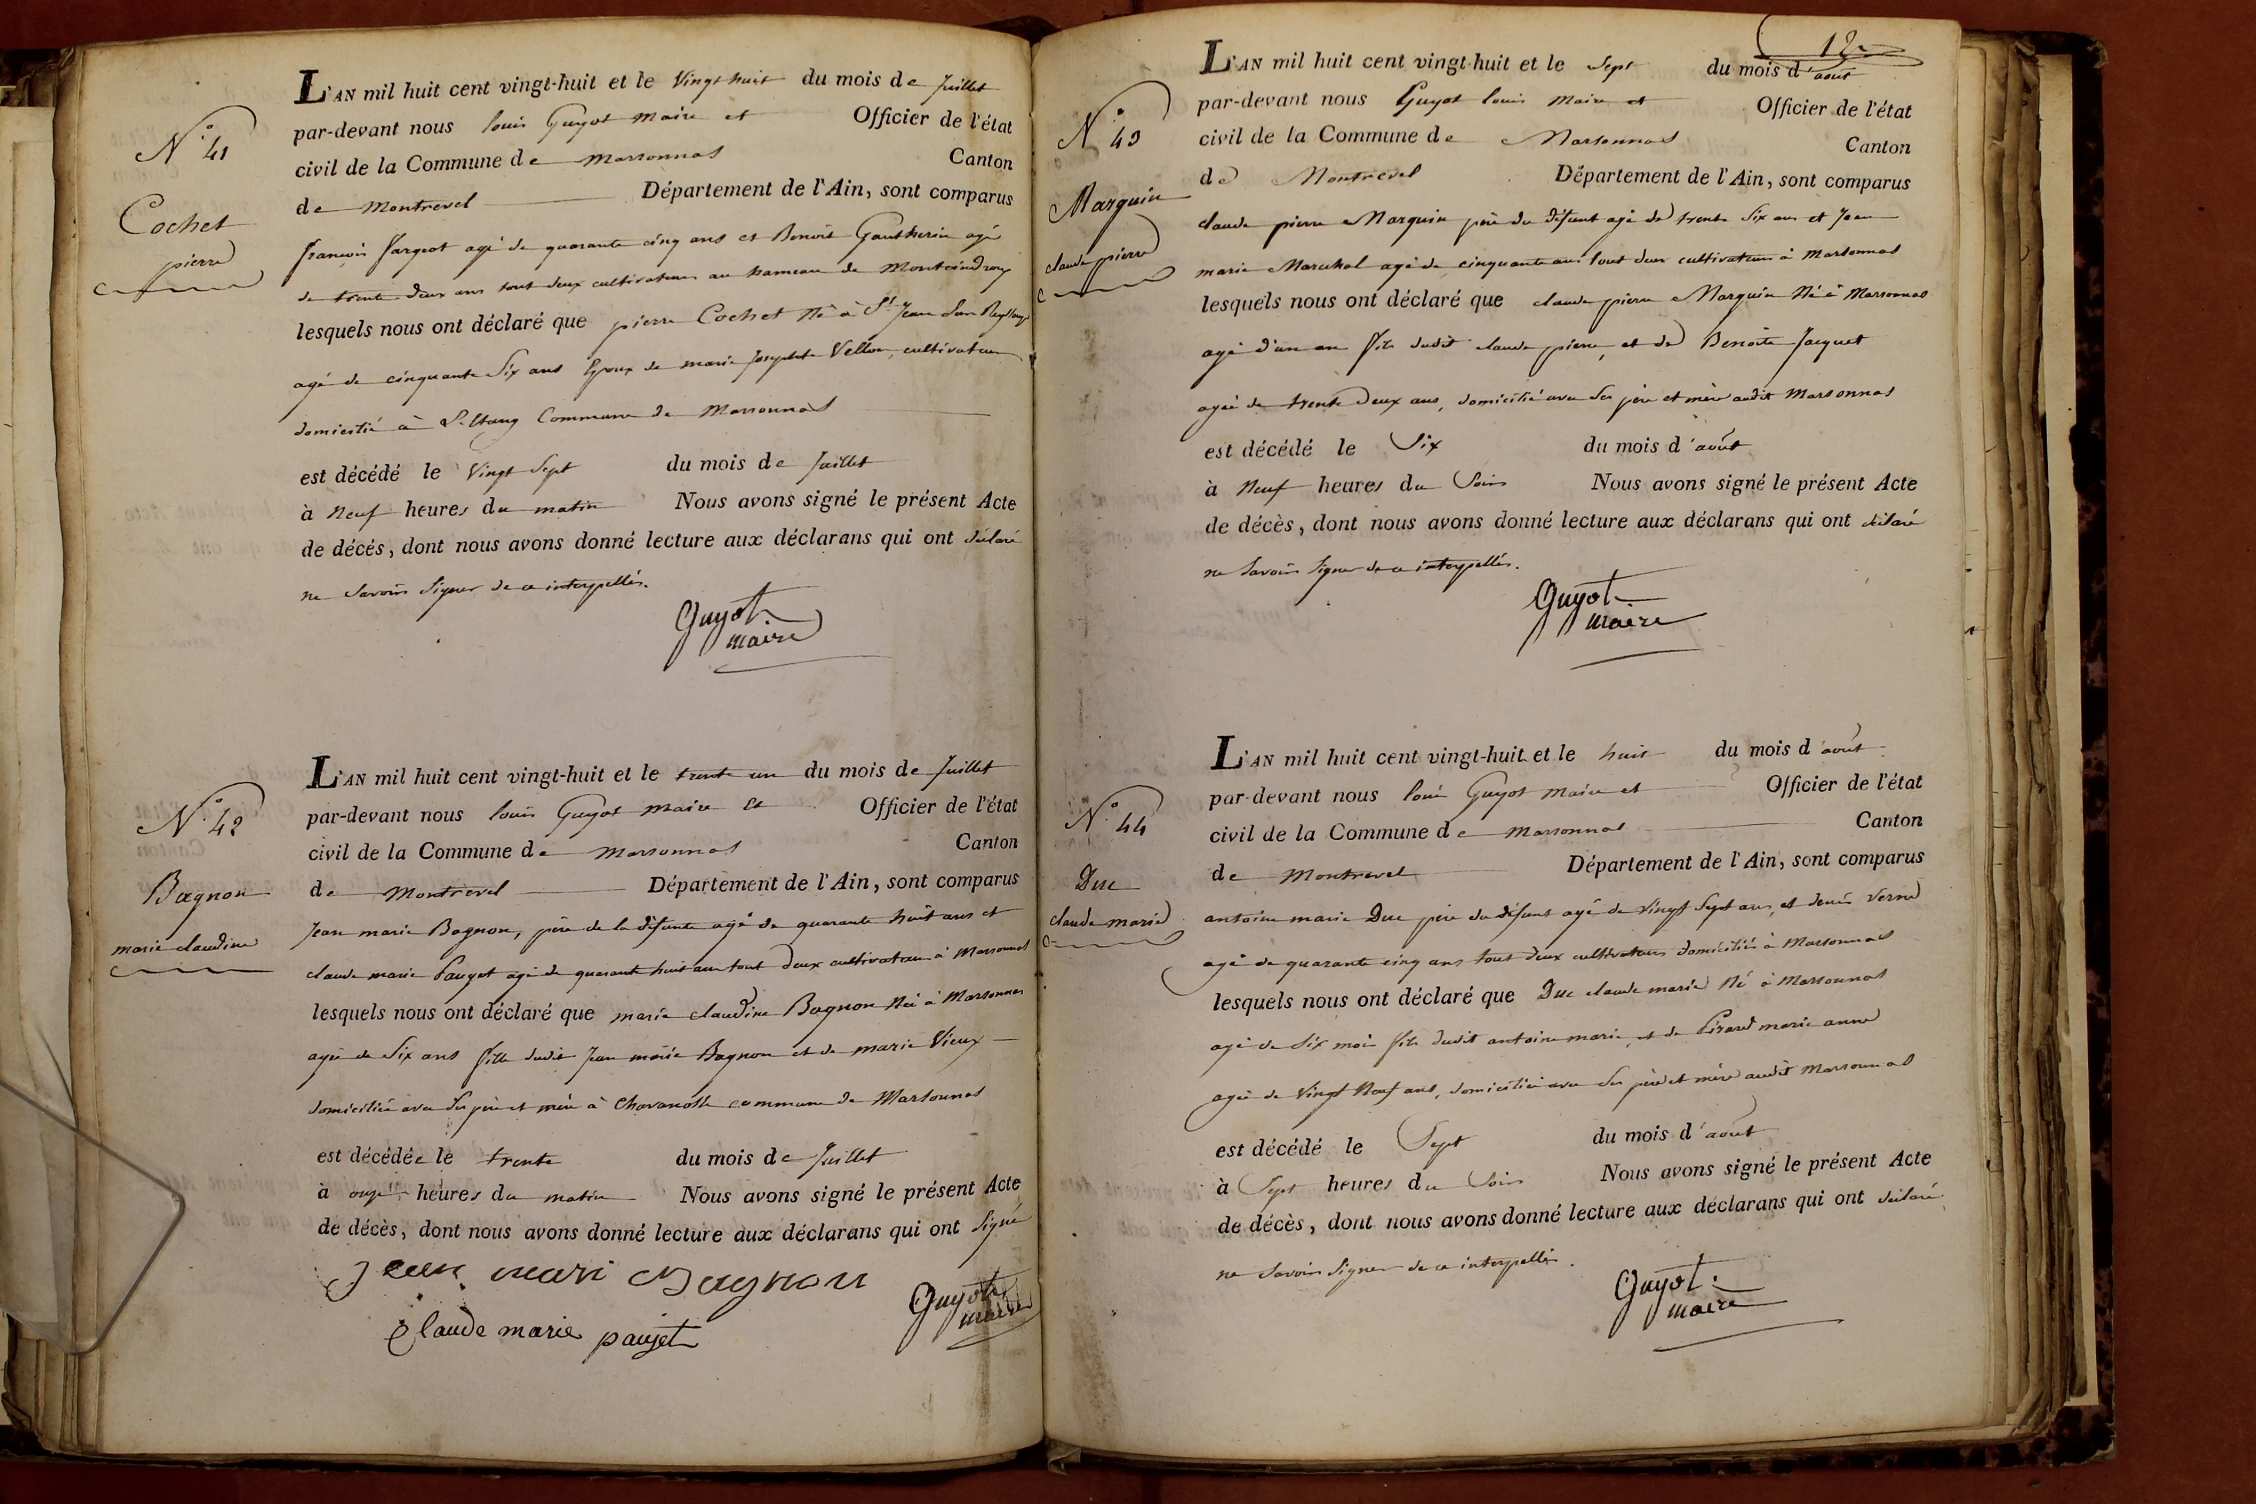 N.° 41
Cochet
pierre
L'AN mil huit cent vingt-huit et le Vingt huit du mois de Juillet
par-devant nous louis Guyot maire et Officier de l'état
civil de la Commune de marsonnas Canton
de montrevel Département de l'Ain, sont comparus
françois fargeot agé de quarante cinq ans et Benoit Gautherin agé
de trente deux ans tout deux cultivateurs au hameau de
lesquels nous ont déclaré que pierre Cochet Né à St Jean Sur Reyssouze
agé de cinquante Six ans Epoux de marie Josephte cultivateur
domicilié à L'Etang Commune de Marsonnas
est décédé le Vingt Sept du mois de Juillet
à Neuf heures du matin Nous avons signé le présent Acte
de décés, dont nous avons donné lecture aux déclarans qui ont déclaré
ne Savoir Signer de ce interpellés.
Guyot
maire
N.° 42
Bognon
marie claudine
L'AN mil huit cent vingt-huit et le trente un du mois de Juillet
par-devant nous louis Guyot maire et Officier de l'état
civil de la Commune de marsonnas Canton
de Montrevel Département de l'Ain, sont comparus
Jean marie Bognon, père de la défunte agé de quarante huit ans et
claude marie Pauget agé de quarante huit ans tout deux cultivateurs à Marsonnas
lesquels nous ont déclaré que marie claudine Bognon Née à Marsonnas
agée de Six ans fille dudit Jean marie Bognon et de marie Vieux
domiciliée avec Ses père et mère à commune de Marsonnas
est décédée le trente du mois de Juillet
à onze heures du matin Nous avons signé le présent Acte
de décès, dont nous avons donné lecture aux déclarans qui ont Signé
Jean mari Bagnon
Claude marie paujet
Guyot
maire
12
N.° 43
Marguin
claude pierre
L'AN mil huit cent vingt-huit et le Sept du mois d'août
par-devant nous Guyot louis maire et Officier de l'état
civil de la Commune de Marsonnas Canton
de Montrevel Département de l'Ain, sont comparus
claude pierre Marguin père du défunt agé de trente Six ans et Jean
marie Marechal agé de cinquante ans tout deux cultivateurs à Marsonnas
lesquels nous ont déclaré que claude pierre Marguin Né à Marsonnas
agé d'un an fils dudit claude pierre, et de Benoite Jacquet
agée de trente Deux ans, domicilié avec Ses père et mère audit Marsonnas
est décédé le Six du mois d'août
à Neuf heures du Soir Nous avons signé le présent Acte
de décès, dont nous avons donné lecture aux déclarans qui ont déclaré
ne Savoir Signer de ce interpellés.
Guyot
maire
N.° 44
Duc
claude marie
L'AN mil huit cent vingt-huit et le huit du mois d'août
par-devant nous louis Guyot maire et Officier de l'état
civil de la Commune de marsonnas Canton
de Montrevel Département de l'Ain, sont comparus
antoine marie Duc père du défunt agé de Vingt Sept ans, et denis Verne
agé de quarante cinq ans tout deux cultivateurs domiciliés à Marsonnas
lesquels nous ont déclaré que Duc claude marie Né à Marsonnas
agé de Six mois fils dudit antoine marie, et de Pirard marie anne
agée de Vingt Neuf ans, domicilié avec Ses père et mère audit Marsonnas
est décédé le Sept du mois d'août
à Sept heures du Soir Nous avons signé le présent Acte
de décès, dont nous avons donné lecture aux déclarans qui ont déclaré
ne Savoir Signer de ce interpellés.
Guyot
maire